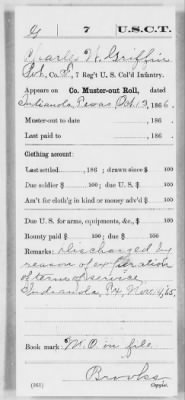 G 7 U.S.C.T.
Charles W. Griffin
Pvt., Co. G, 7 Reg't U. S. Col'd Infantry.
Appears on Co. Muster-out Roll, dated
Indianola, Texas Oct 13, 1866.
Muster-out to date , 186 .
Last paid to , 186 .
Clothing account:
Last settled , 186 ; drawn since $ 100
Due soldier $ 100; due U. S. $ 100
Am't for cloth'g in kind or money adv'd $ 100
Due U. S. for arms, equipments, &c., $ 100
Bounty paid $ 100; due $ 100
Remarks: Discharged by
reason of expiration
of term of service
Indianola, Nov. 4, 65.
Book mark: M.O. in file
Brooks
(361) Copyist.